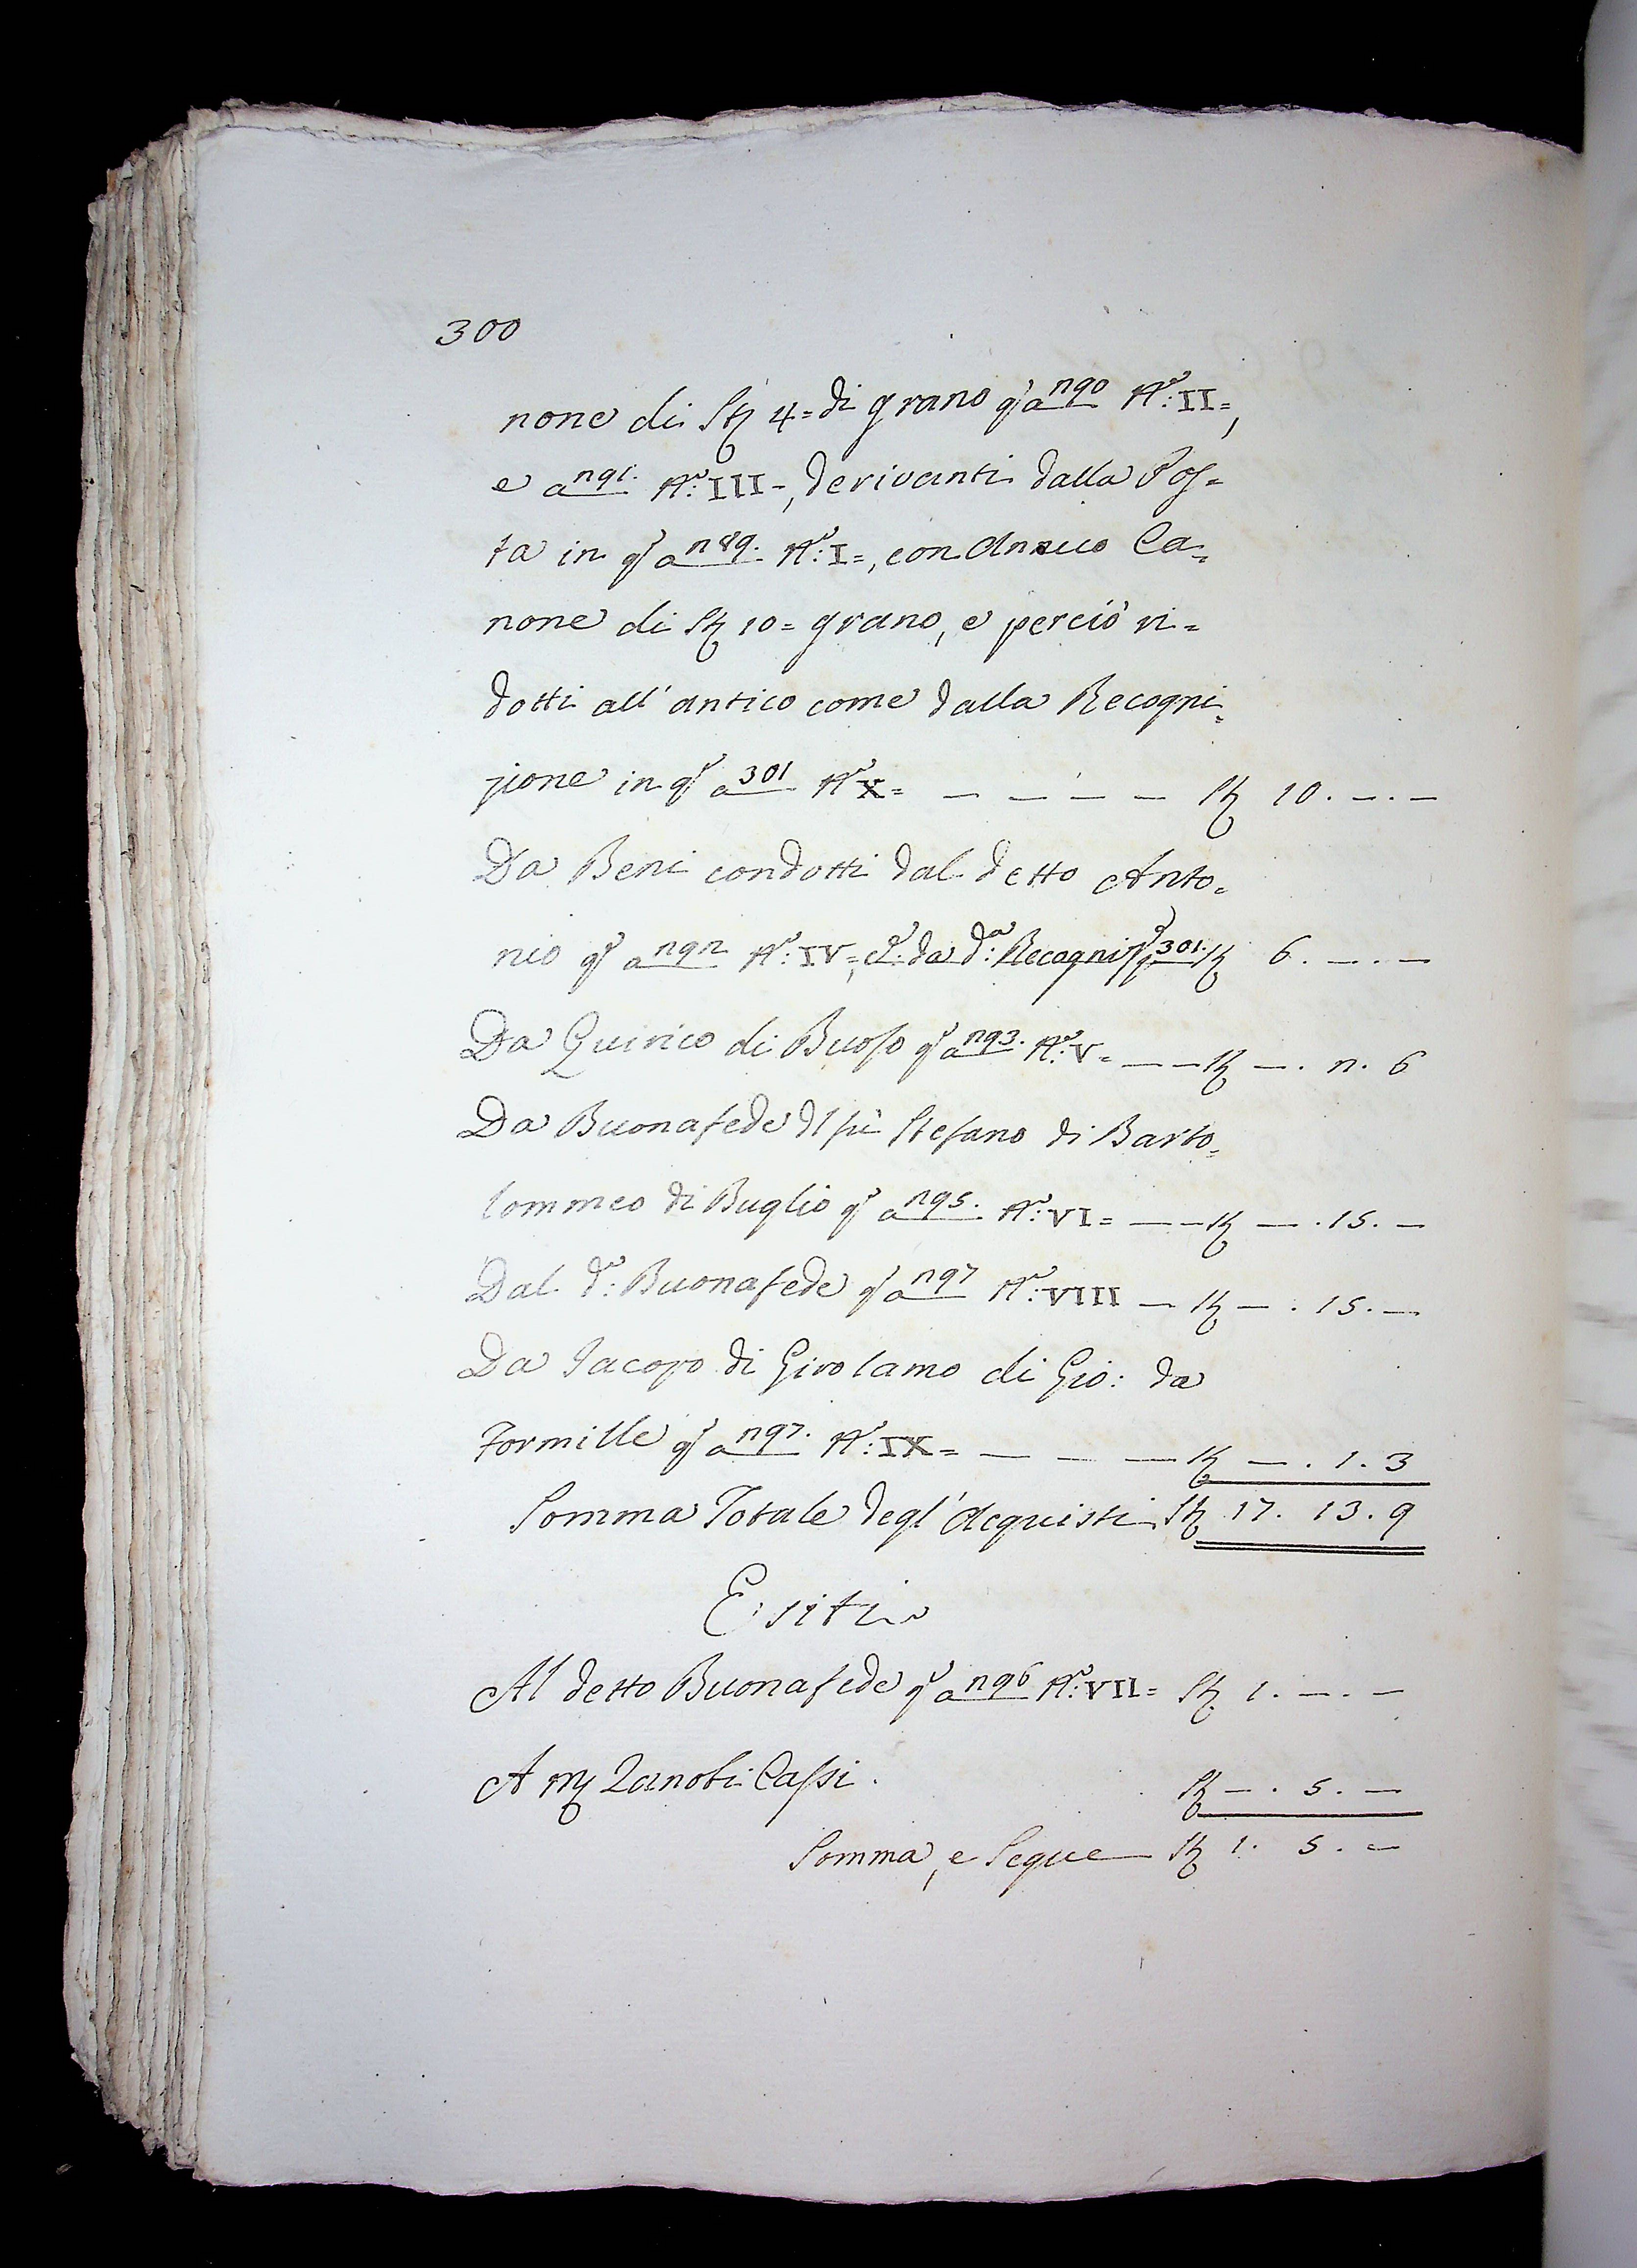 300
none di St 4= di grano q.º a 290 N.º: II=,
e a 291. N.º: III=, derivanti dalla Pos=
ta in q.º a 289. N.º: I=, con Annuo Ca=
none di St 10= grano, e perciò ri=
dotti all' antico come dalla Recogni=
zione in q.º a 301 N.º X= — — — — St 10. —. —
Da Beni condotti dal detto Anto=
nio q.º a 292 N.º: IV=, e da d.ª: Recogniz.e 301. St 6. —. —
Da Quirico di Buoso q.º a 293. N.º: V= — — St —. 2. 6
Da Buonafede d'l fù Stefano di Barto=
lommeo di Buglio q.º a 295. N.º: VI= — — St —. 15. —
Dal d.º: Buonafede q.º a 297 N.º: VIII — St —. 15. —
Da Iacopo di Girolamo di Gio: da
Formille q.º a 297. N.º: IX= — — — St —. 1. 3
Somma Totale degl' Acquisti St 17. 13. 9
Esiti
Al detto Buonafede q.º a 296 N.º: VII= St 1. —. —
A m Zanobi Cassi. St —. 5. —
Somma, e Segue — St 1. 5. —